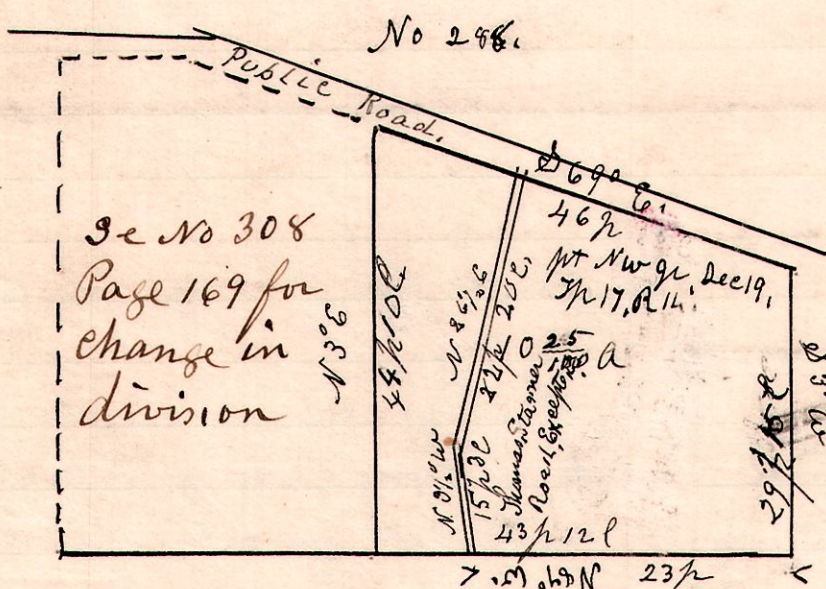 No 288.
Public Road.
Se No 308
Page 169 for
change in
division
N 3° E
44p 10l
S 69° E.
46p
pt Nw qr, Sec 19,
Tp 17, R 11.
N 8 6½° E
22p 20l.
0 25/100 A
Thomas Starner
Road, Excepted
N 9½° W
15p 3l
43p 12l
29p 15l
S 3° W
N 89° E.
23p